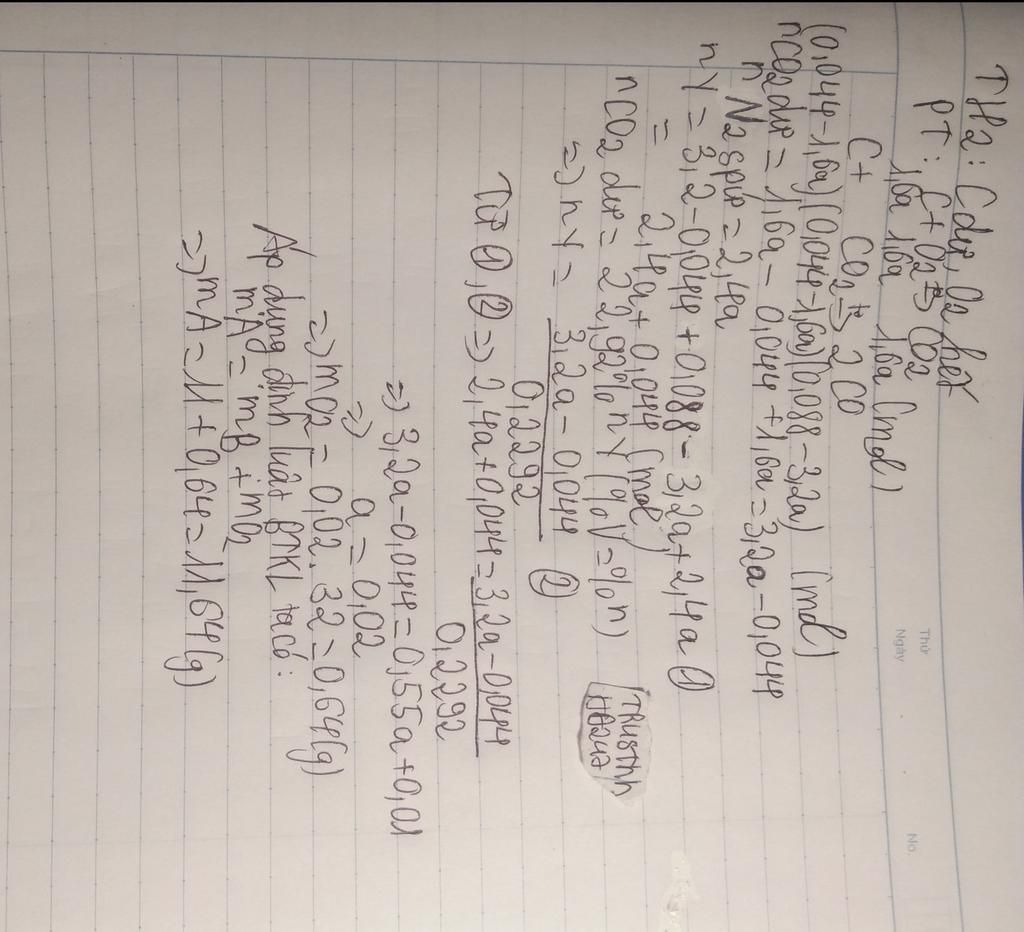 TH2: C dư, O2 hết
PT: C + O2 → CO2
1,6a 1,6a 1,6a (mol)
C + CO2 → 2CO
(0,044-1,6a) (0,044-1,6a) (0,088-3,2a) (mol)
nCO2 dư = 1,6a - 0,044 + 1,6a = 3,2a - 0,044
n N2 spư = 2,4a
nY = 3,2 - 0,044 + 0,088 - 3,2a + 2,4a ①
= 2,4a + 0,044 (mol)
nCO2 dư = 22,92% nY (%V = %n)
=> nY = 3,2a - 0,044 / 0,2292 ②
Từ ①, ② => 2,4a + 0,044 = 3,2a - 0,044 / 0,2292
=> 3,2a - 0,044 = 0,55a + 0,01
=> a = 0,02
=> mO2 = 0,02.32 = 0,64 (g)
Áp dụng định luật BTKL ta có:
mA = mB + mO2
=> mA = 11 + 0,64 = 11,64 (g)
Thứ
Ngày
No.